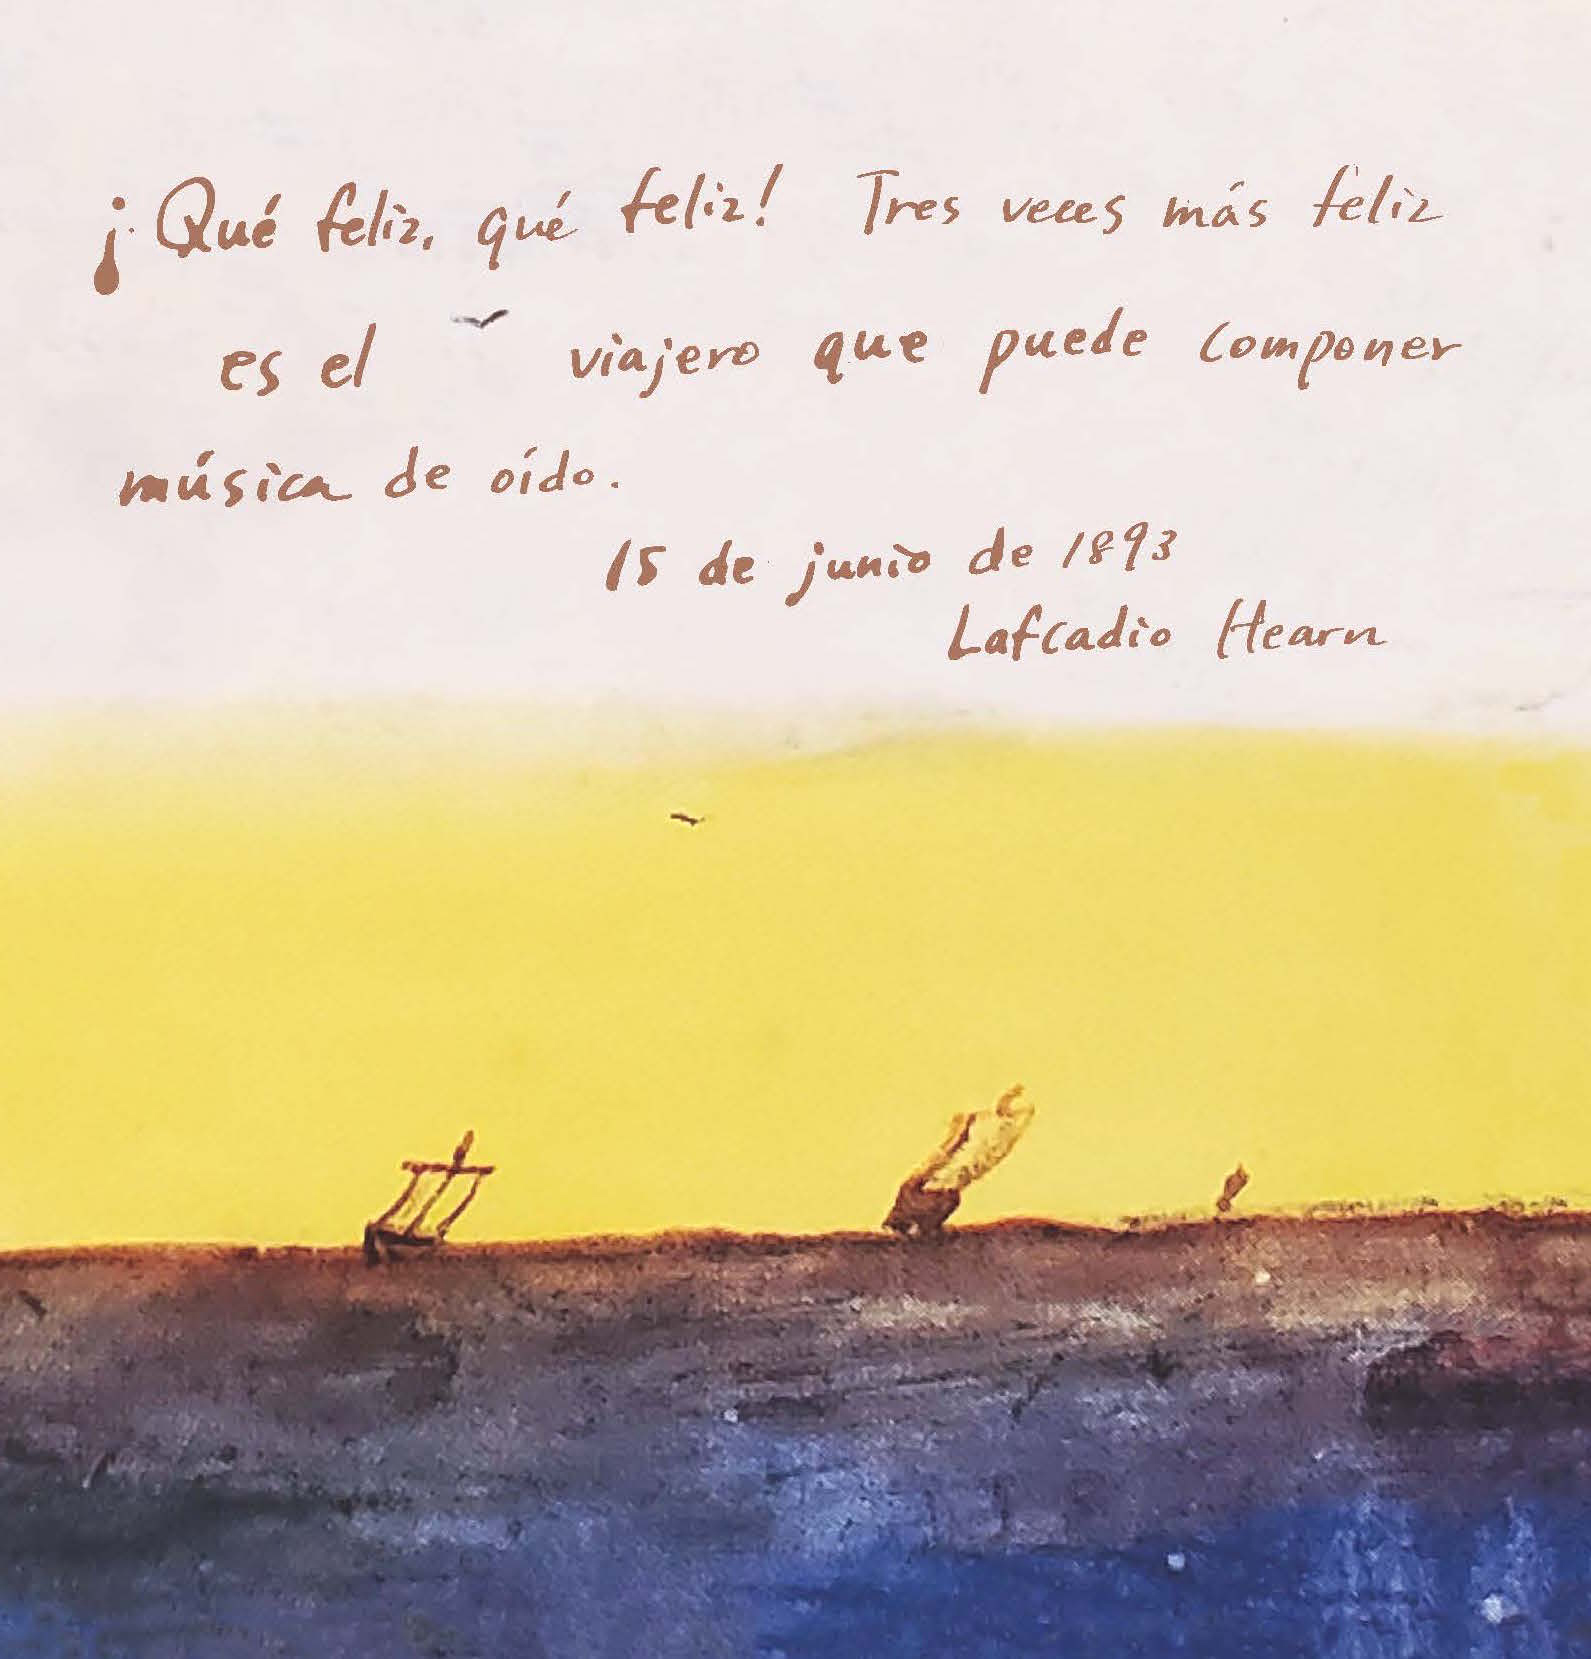 ¡Qué feliz, qué feliz! Tres veces más feliz
es el viajero que puede componer
música de oído.
15 de junio de 1893
Lafcadio Hearn